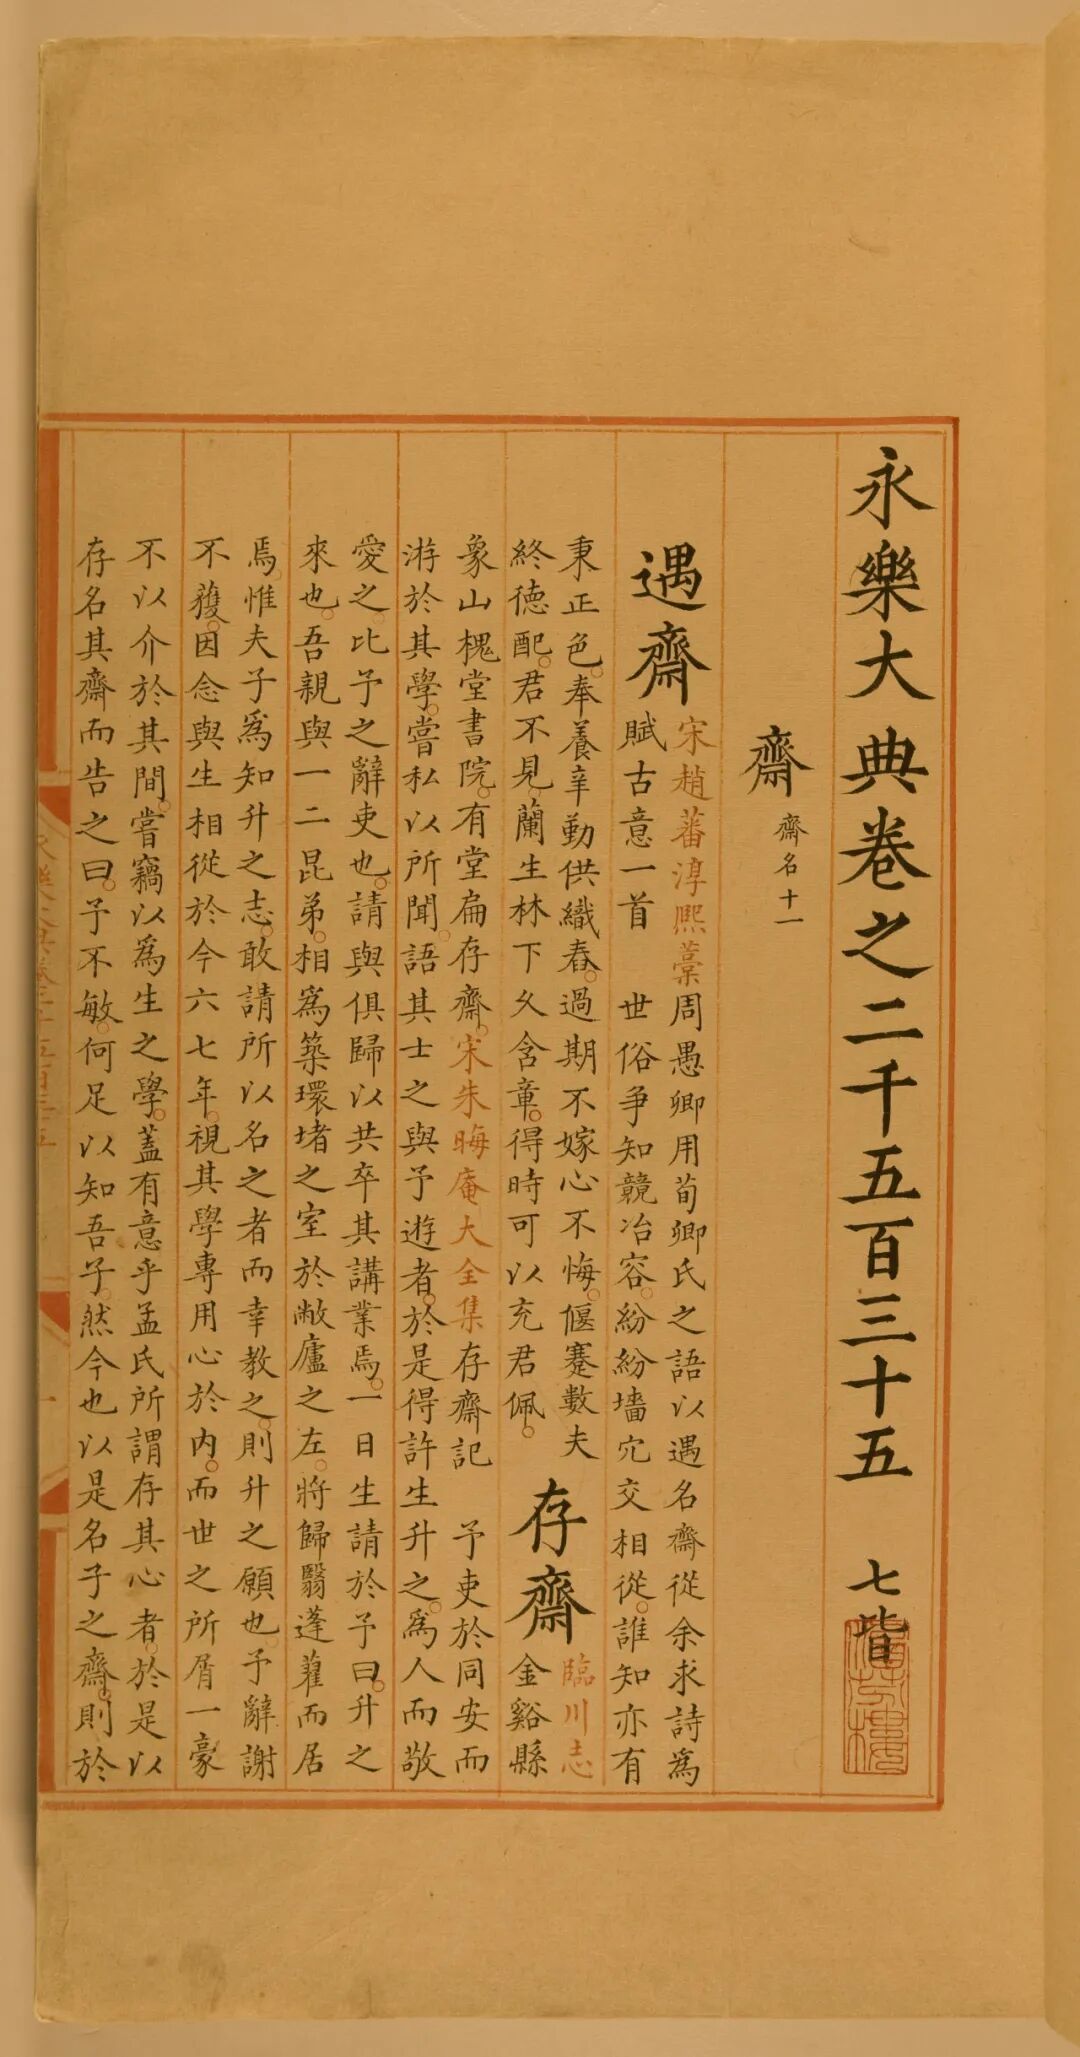 永樂大典卷之二千五百三十五 七皆
齋 齋名十一
遇齋 宋趙蕃淳熙藁周愚卿用荀卿氏之語以遇名齋從余求詩爲
賦古意一首 世俗爭知競冶容紛紛墻宂交相從誰知亦有
秉正色奉養辛勤供織舂過期不嫁心不悔偃蹇數夫
終德配君不見蘭生林下久含章得時可以充君佩
存齋 臨川志
金谿縣
象山槐堂書院有堂扁存齋宋朱晦庵大全集存齋記 予吏於同安而
游於其學嘗私以所聞語其士之與予遊者於是得許生升之爲人而敬
愛之比予之辭吏也請與俱歸以共卒其講業焉一日生請於予曰升之
來也吾親與一二昆弟相爲築環堵之室於敝廬之左將歸翳蓬藋而居
焉惟夫子爲知升之志敢請所以名之者而幸教之則升之願也予辭謝
不獲因念與生相從於今六七年視其學專用心於内而世之所屑一豪
不以介於其間嘗竊以爲生之學蓋有意乎孟氏所謂存其心者於是以
存名其齋而告之曰予不敏何足以知吾子然今也以是名子之齋則於